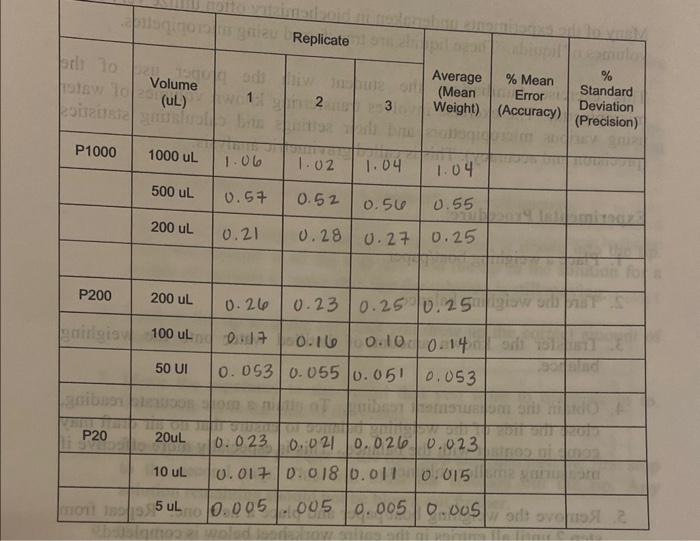 Replicate
Volume (uL) 1 2 3 Average (Mean Weight) % Mean Error (Accuracy) % Standard Deviation (Precision)
P1000 1000 uL 1.06 1.02 1.04 1.04
500 uL 0.57 0.52 0.56 0.55
200 uL 0.21 0.28 0.27 0.25
P200 200 uL 0.26 0.23 0.25 0.25
100 uL 0.17 0.16 0.10 0.14
50 Ul 0.053 0.055 0.051 0.053
P20 20uL 0.023 0.021 0.026 0.023
10 uL 0.017 0.018 0.011 0.015
5 uL 0.005 .005 0.005 0.005